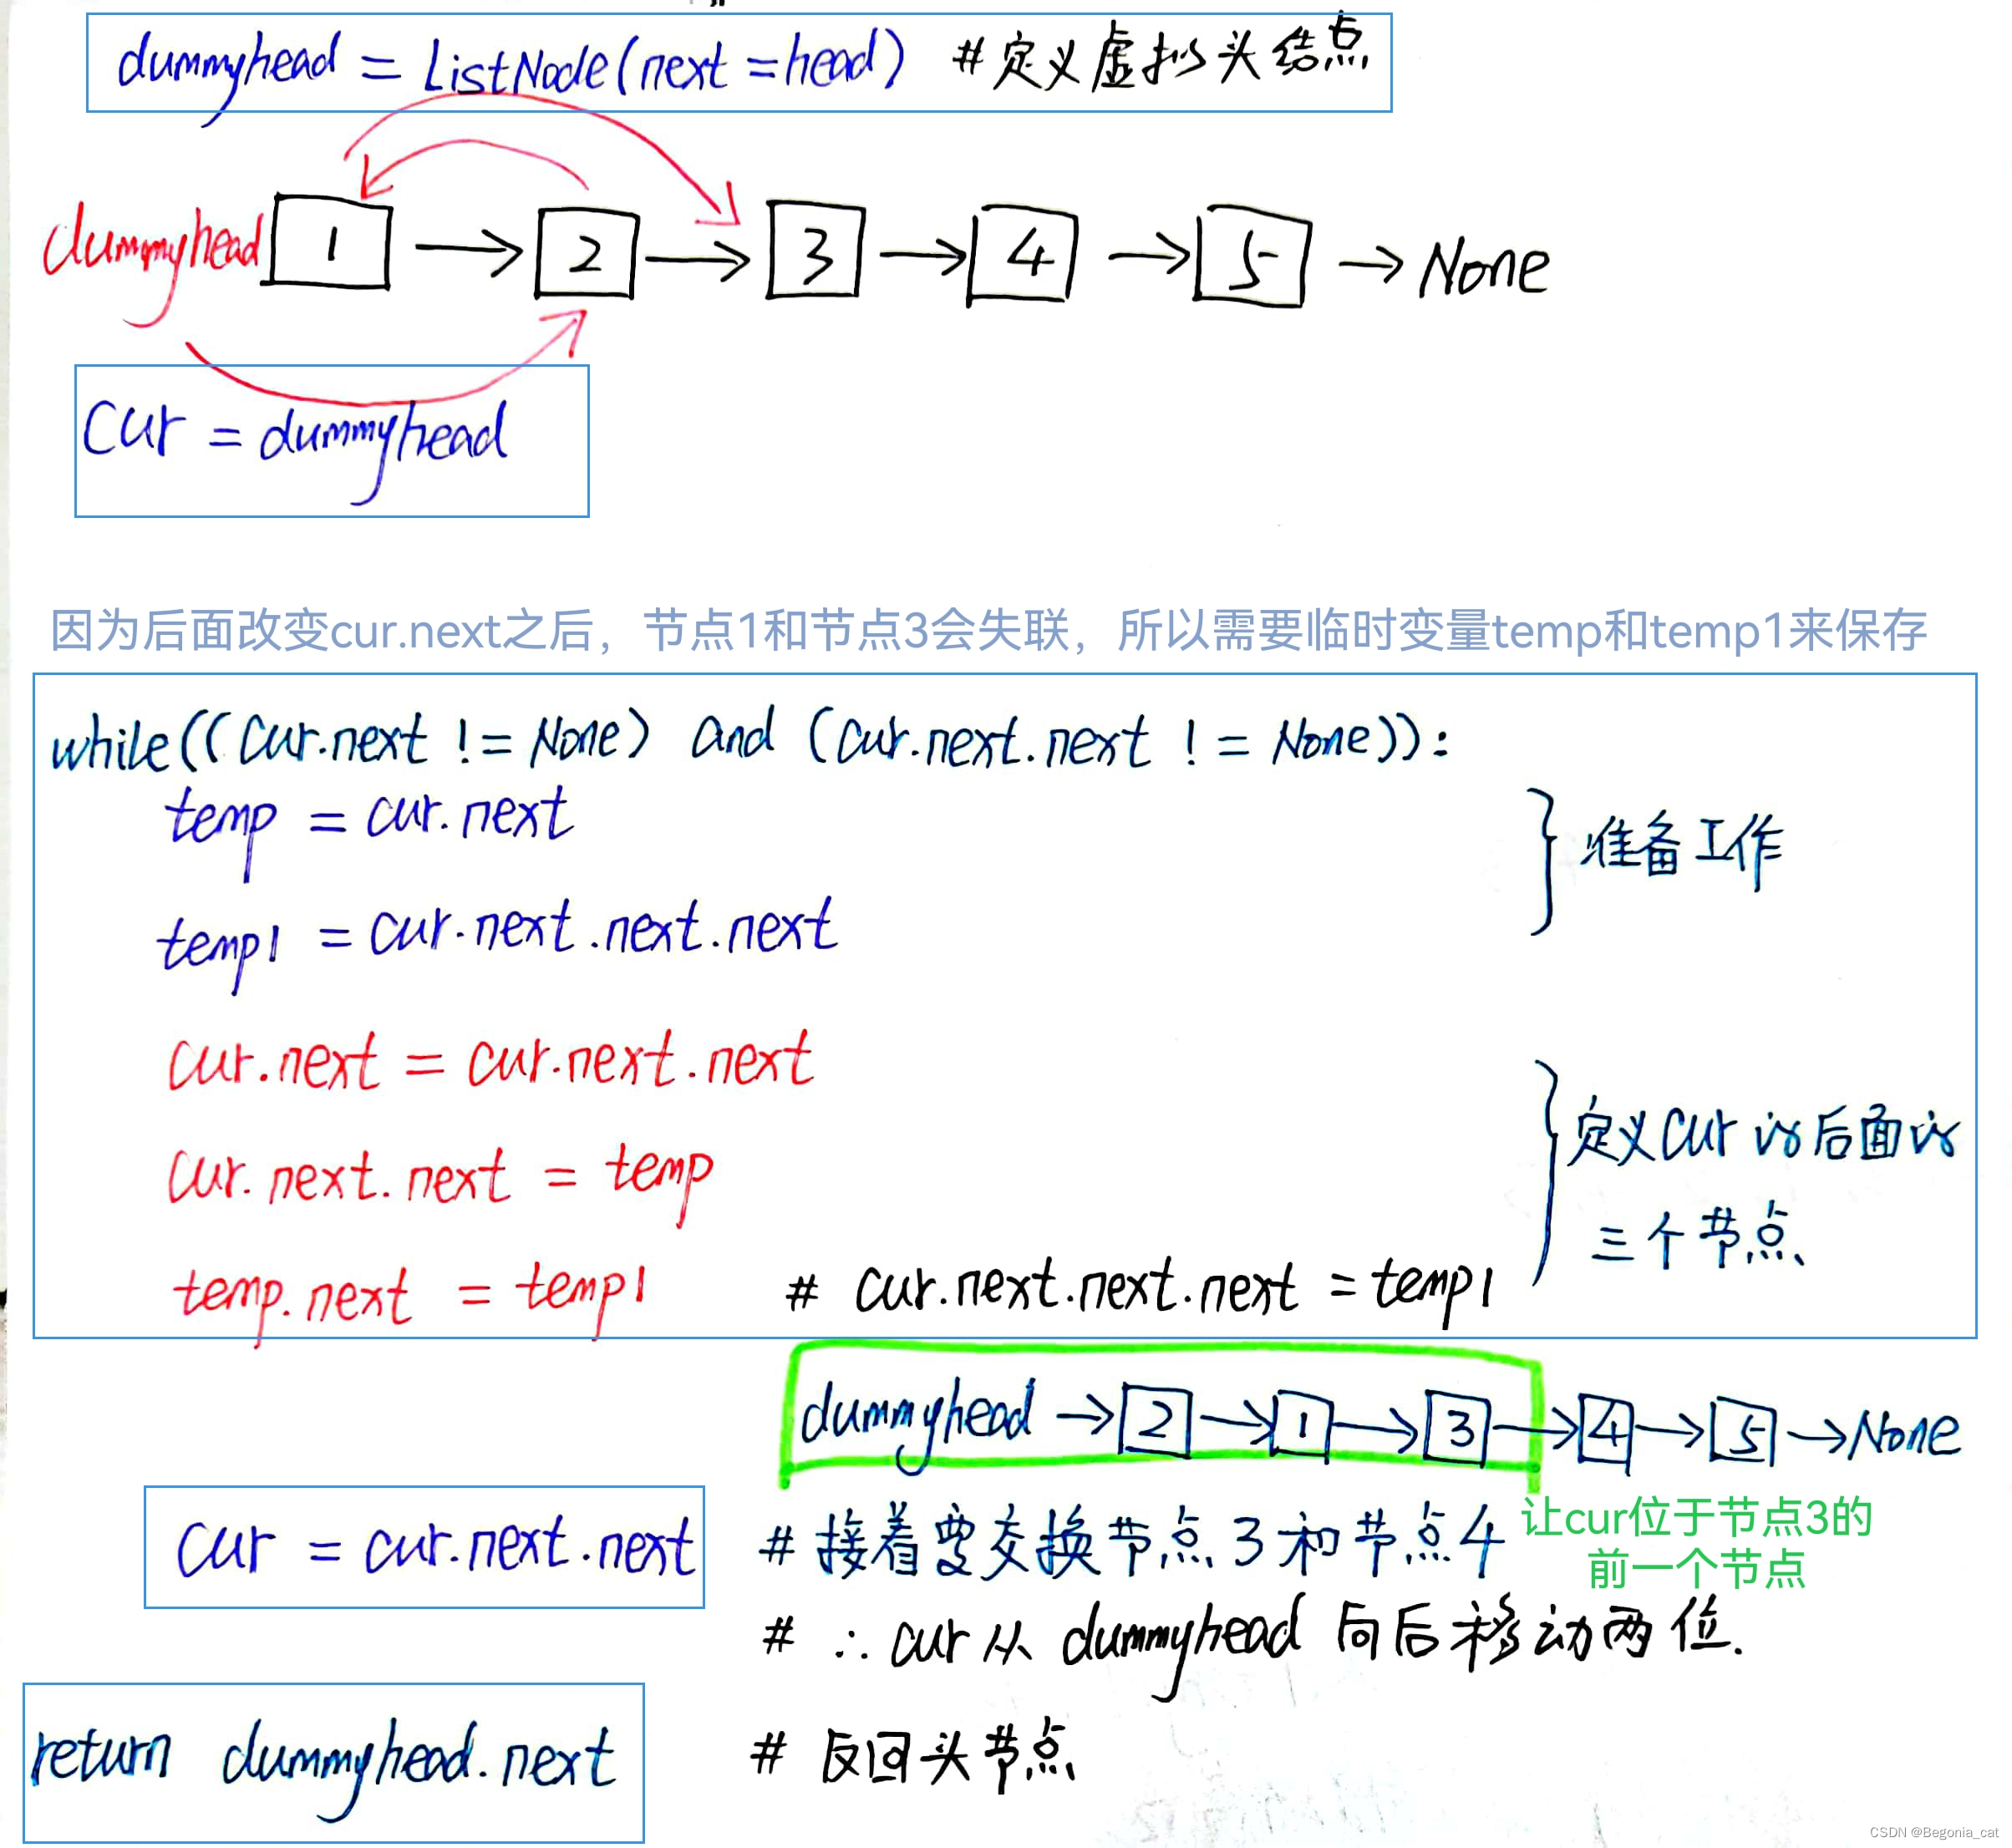 dummyhead = ListNode(next = head) # 定义虚拟头结点
dummyhead 1 → 2 → 3 → 4 → 5 → None
cur = dummyhead
因为后面改变cur.next之后，节点1和节点3会失联，所以需要临时变量temp和temp1来保存
while((cur.next != None) and (cur.next.next != None)):
temp = cur.next
准备工作
temp1 = cur.next.next.next
cur.next = cur.next.next
定义cur的后面的
cur.next.next = temp
三个节点
temp.next = temp1 # cur.next.next.next = temp1
dummyhead → 2 → 1 → 3 → 4 → 5 → None
cur = cur.next.next # 接着要交换节点3和节点4
让cur位于节点3的
前一个节点
# ∴ cur从 dummyhead 向后移动两位.
return dummyhead.next # 反回头节点
CSDN @Begonia_cat